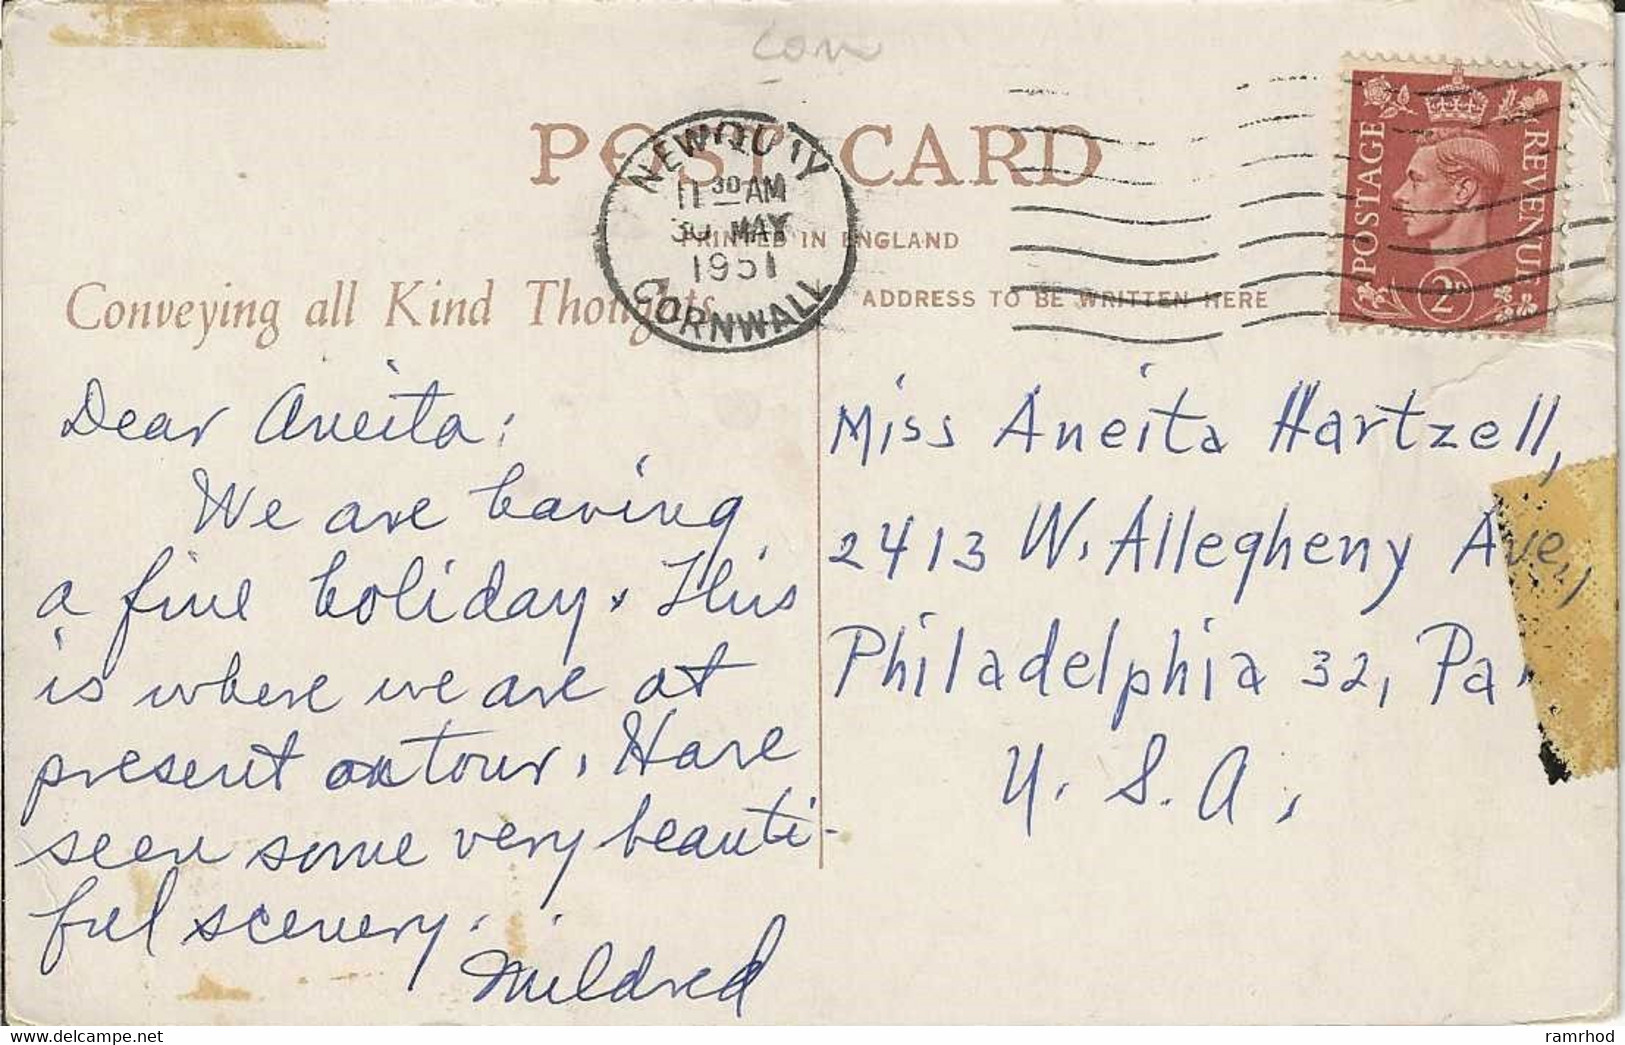 Con
POST CARD
NEWQUAY
11 30 AM
30 MAY
1951
CORNWALL
PRINTED IN ENGLAND
Conveying all Kind Thoughts
ADDRESS TO BE WRITTEN HERE
POSTAGE
REVENUE
2D
Dear Aneita:
We are having
a fine holiday. This
is where we are at
present on tour. Have
seen some very beauti-
ful scenery.
Mildred
Miss Aneita Hartzell,
2413 W. Allegheny Ave.,
Philadelphia 32, Pa.
U. S. A.
www.delcampe.net
ramrhod